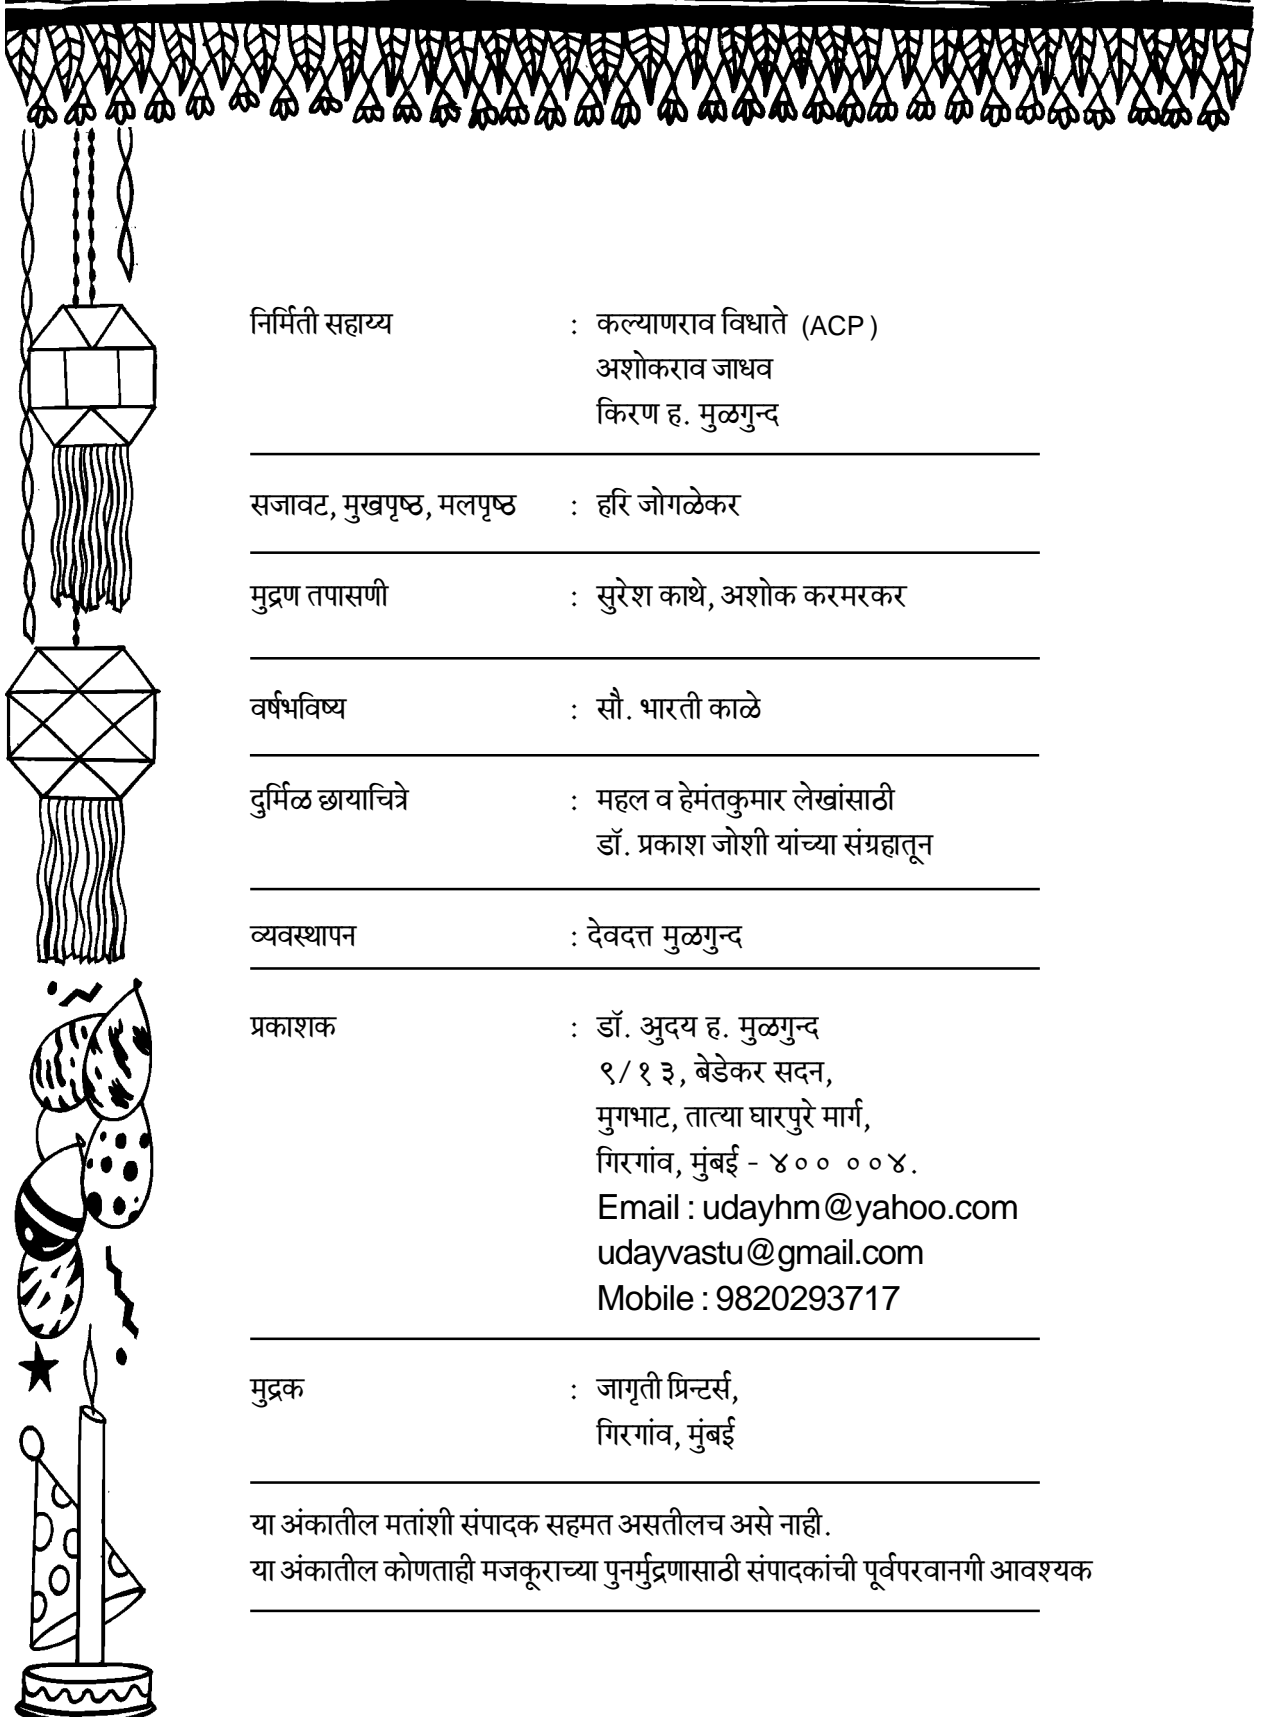 निर्मिती सहाय्य : कल्याणराव विधाते (ACP)
अशोकराव जाधव
किरण ह. मुळगुन्द
सजावट, मुखपृष्ठ, मलपृष्ठ : हरि जोगळेकर
मुद्रण तपासणी : सुरेश काथे, अशोक करमरकर
वर्षभविष्य : सौ. भारती काळे
दुर्मिळ छायाचित्रे : महल व हेमंतकुमार लेखांसाठी
डॉ. प्रकाश जोशी यांच्या संग्रहातून
व्यवस्थापन : देवदत्त मुळगुन्द
प्रकाशक : डॉ. अुदय ह. मुळगुन्द
९/१३, बेडेकर सदन,
मुगभाट, तात्या घारपुरे मार्ग,
गिरगांव, मुंबई - ४०० ००४.
Email : udayhm@yahoo.com
udayvastu@gmail.com
Mobile : 9820293717
मुद्रक : जागृती प्रिन्टर्स,
गिरगांव, मुंबई
या अंकातील मतांशी संपादक सहमत असतीलच असे नाही.
या अंकातील कोणताही मजकूराच्या पुनर्मुद्रणासाठी संपादकांची पूर्वपरवानगी आवश्यक